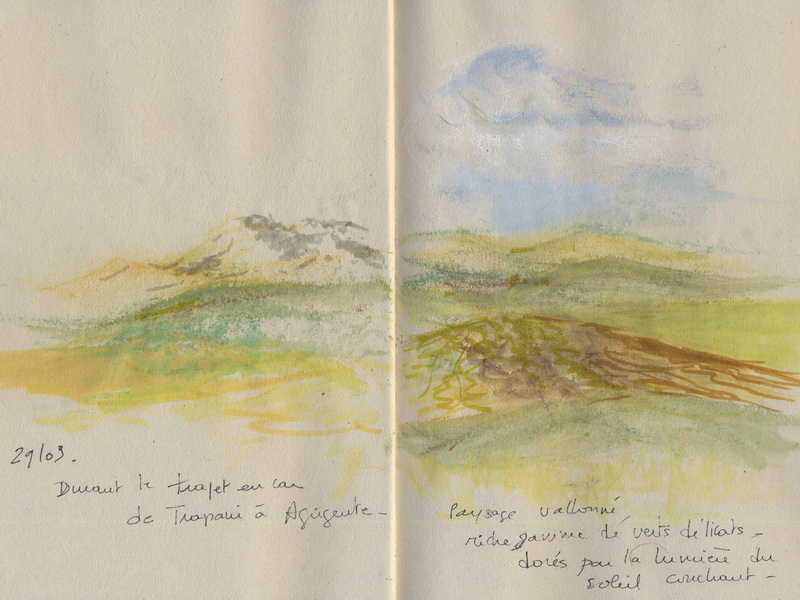 29/03.
Durant le trajet en car
de Trapani à Agrigente -
Paysage vallonné
riche gamme de verts délicats -
dorés par la lumière du
soleil couchant -